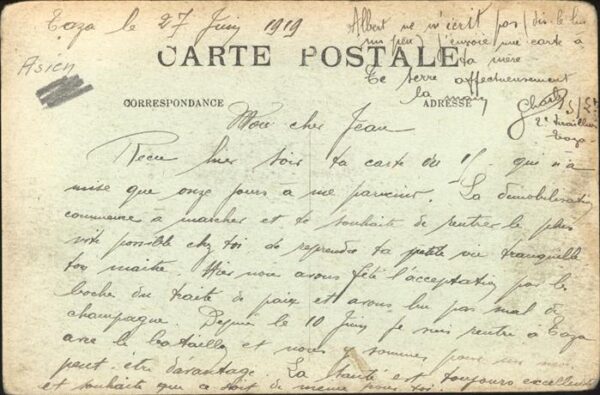 Taza le 27 Juin 1919
Albert ne m'écrit pas (dis le lui
un peu) J'envoie une carte à
ta mère
Te serre affectueusement
la main
Charles
2e Tirailleurs
Taza
Asien
CARTE POSTALE
CORRESPONDANCE
ADRESSE
Mon cher Jean
Reçu hier soir ta carte du 15 qui n'a
mise que onze jours a me parvenir. La démobilisation
commence à marcher et te souhaite de rentrer le plus
vite possible chez toi de reprendre ta petite vie tranquille
ton maitre. Hier nous avons fêté l'acceptation par les
boche du traité de paix et avons bu pas mal de
champagne. Depuis le 10 Juin je suis rentré à Taza
avec le bataillon et nous y sommes pour un mois
peut-être davantage. La santé est toujours excellente
et souhaite que ce soit de meme pour toi